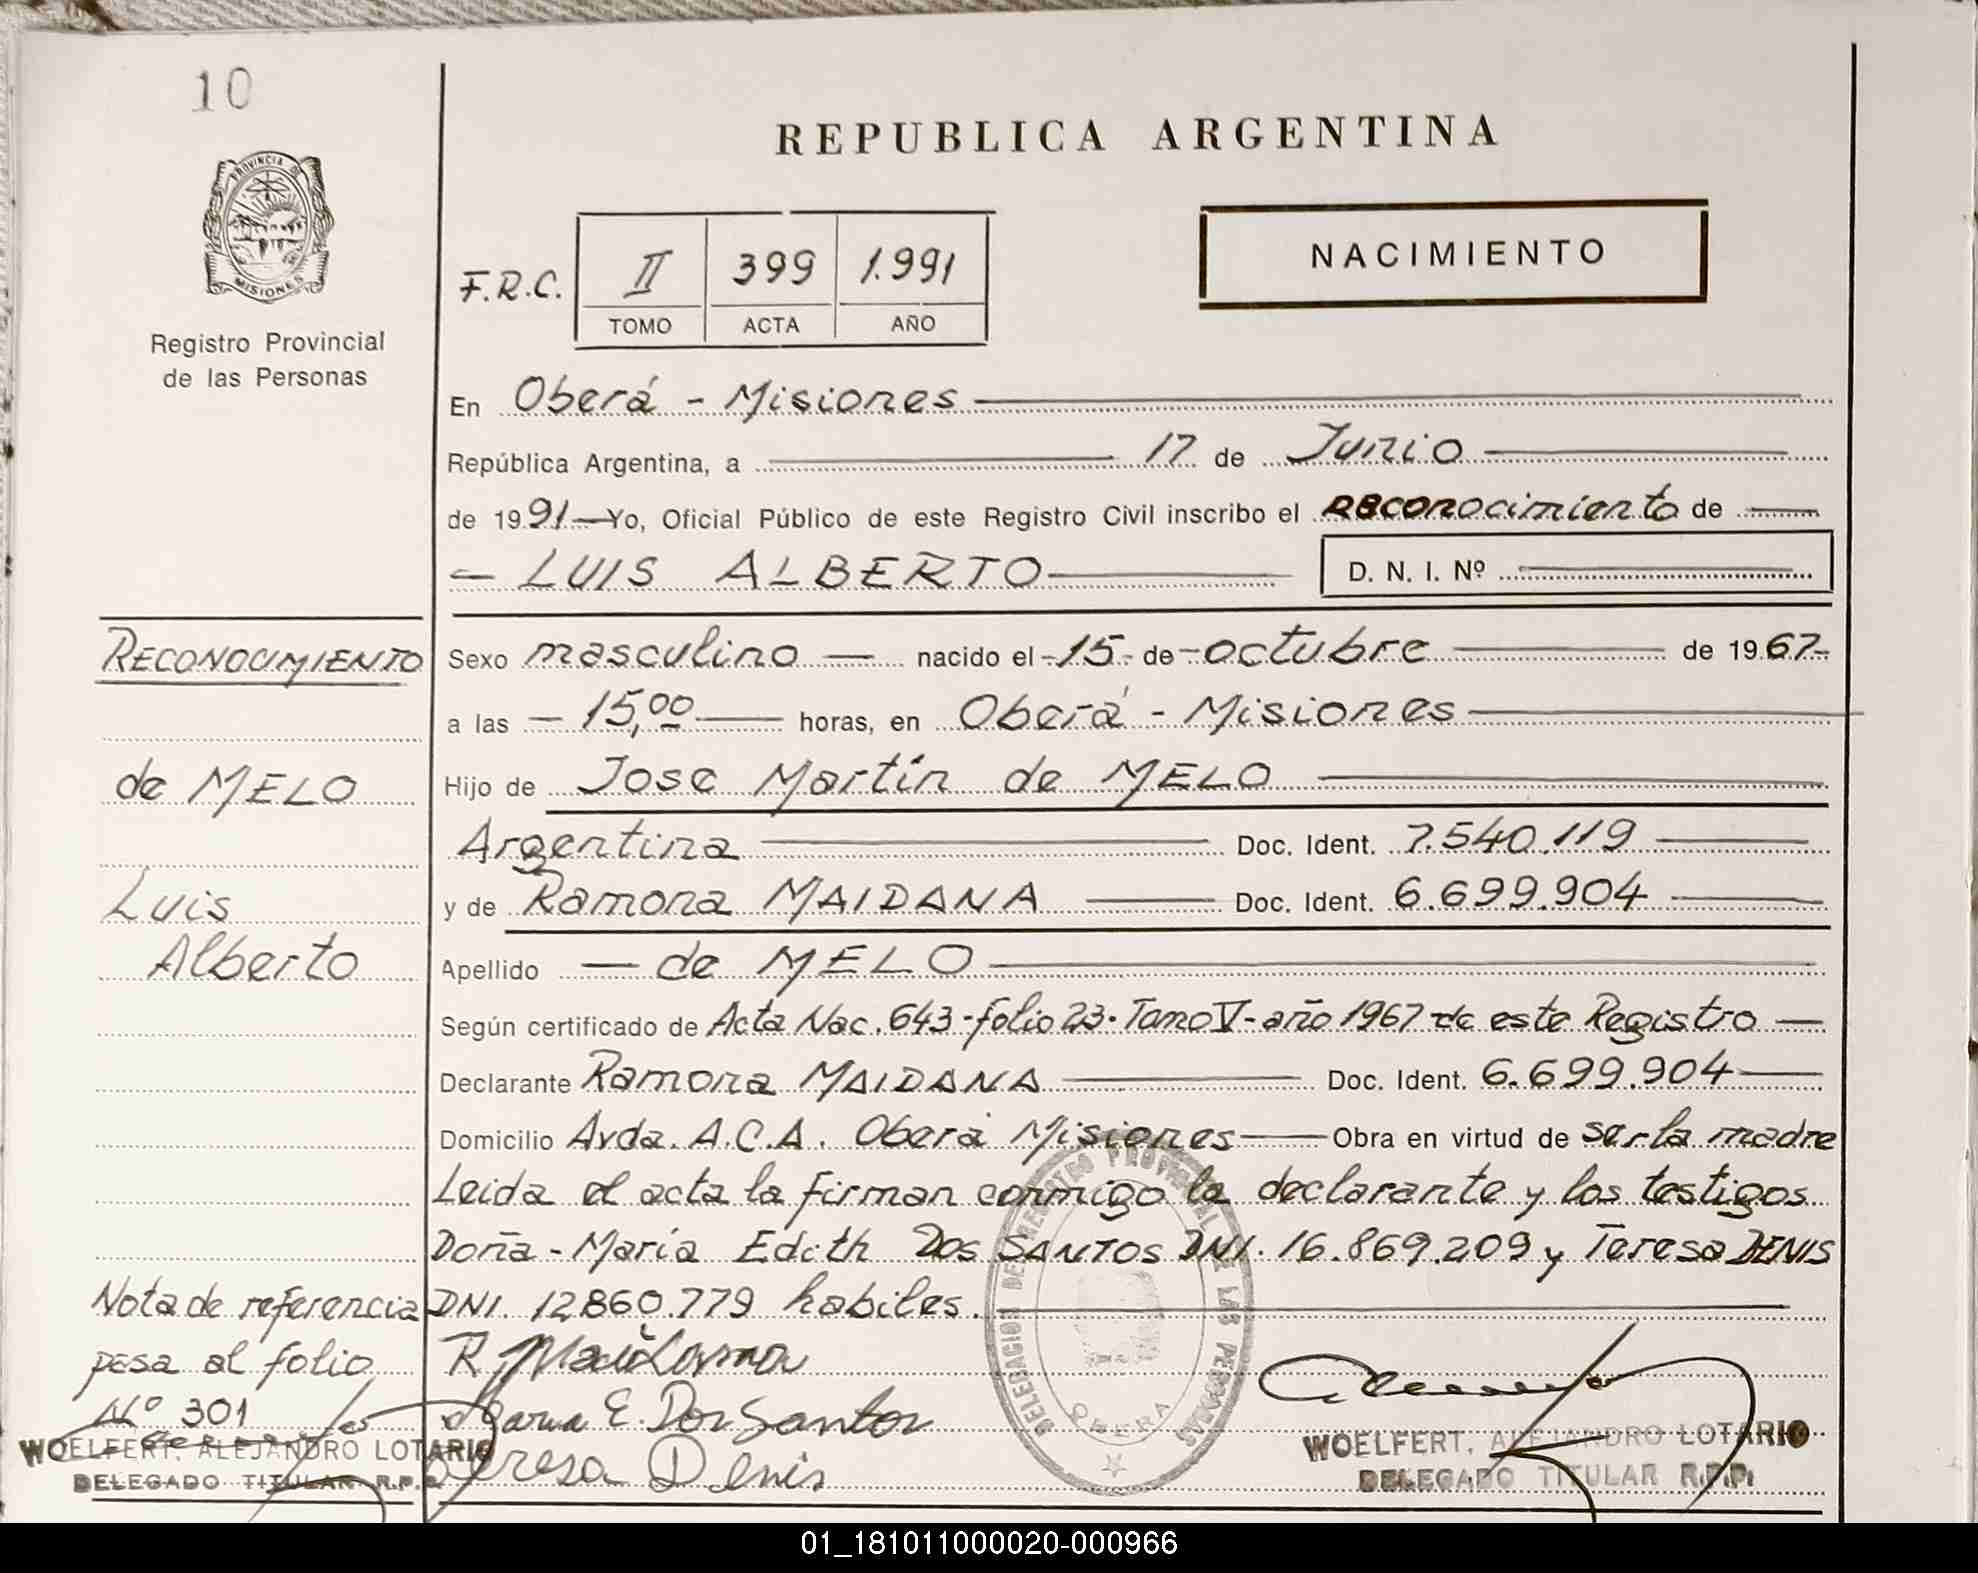 10
PROVINCIA DE
MISIONES
Registro Provincial
de las Personas
REPUBLICA ARGENTINA
NACIMIENTO
F.R.C. II 399 1.991
TOMO ACTA AÑO
En Oberá - Misiones
República Argentina, a 17 de Junio
de 1991 Yo, Oficial Público de este Registro Civil inscribo el reconocimiento de
LUIS ALBERTO D. N. I. Nº
Sexo masculino nacido el 15 de octubre de 1967
a las 15,00 horas, en Oberá - Misiones
Hijo de Jose Martín de MELO
Argentina Doc. Ident. 7.540.119
y de Ramona MAIDANA Doc. Ident. 6.699.904
Apellido de MELO
Según certificado de Acta Nac. 643 - folio 23 - Tomo V - año 1967 de este Registro
Declarante Ramona MAIDANA Doc. Ident. 6.699.904
Domicilio Avda. A.C.A. Oberá Misiones Obra en virtud de ser la madre
Leida el acta la firman conmigo la declarante y los testigos
Doña - María Edith DOS SANTOS DNI. 16.869.209 y Teresa DENIS
DNI. 12.860.779 habiles.
RECONOCIMIENTO
de MELO
Luis
Alberto
Nota de referencia
pasa al folio
Nº 301
WOELFERT, ALEJANDRO LOTARIO
DELEGADO TITULAR R.P.P.
Maria E. Dos Santos
Teresa Denis
DELEGACION DEL REGISTRO PROVINCIAL DE LAS PERSONAS
OBERA
WOELFERT, ALEJANDRO LOTARIO
DELEGADO TITULAR R.P.P.
01_181011000020-000966